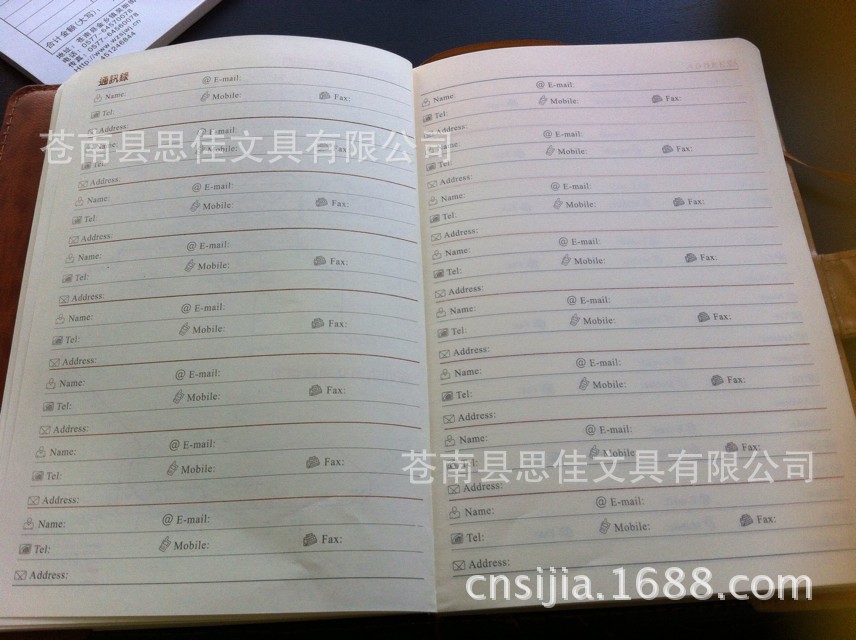 合计金额(大写):
电话: 0577-64580078
通訊録
Name: @ E-mail:
Tel: Mobile: Fax:
Address:
Name: @ E-mail:
Tel: Mobile: Fax:
Address:
Name: @ E-mail:
Tel: Mobile: Fax:
Address:
Name: @ E-mail:
Tel: Mobile: Fax:
Address:
Name: @ E-mail:
Tel: Mobile: Fax:
Address:
Name: @ E-mail:
Tel: Mobile: Fax:
Address:
Name: @ E-mail:
Tel: Mobile: Fax:
Address:
Name: @ E-mail:
Tel: Mobile: Fax:
Address:
Name: @ E-mail:
Tel: Mobile: Fax:
Address:
Name: @ E-mail:
Tel: Mobile: Fax:
Address:
Name: @ E-mail:
Tel: Mobile: Fax:
Address:
Name: @ E-mail:
Tel: Mobile: Fax:
Address:
Name: @ E-mail:
Tel: Mobile: Fax:
Address:
Name: @ E-mail:
Tel: Mobile: Fax:
Address:
Name: @ E-mail:
Tel: Mobile: Fax:
Address:
Name: @ E-mail:
Tel: Mobile: Fax:
Address:
苍南县思佳文具有限公司
苍南县思佳文具有限公司
cnsijia.1688.com